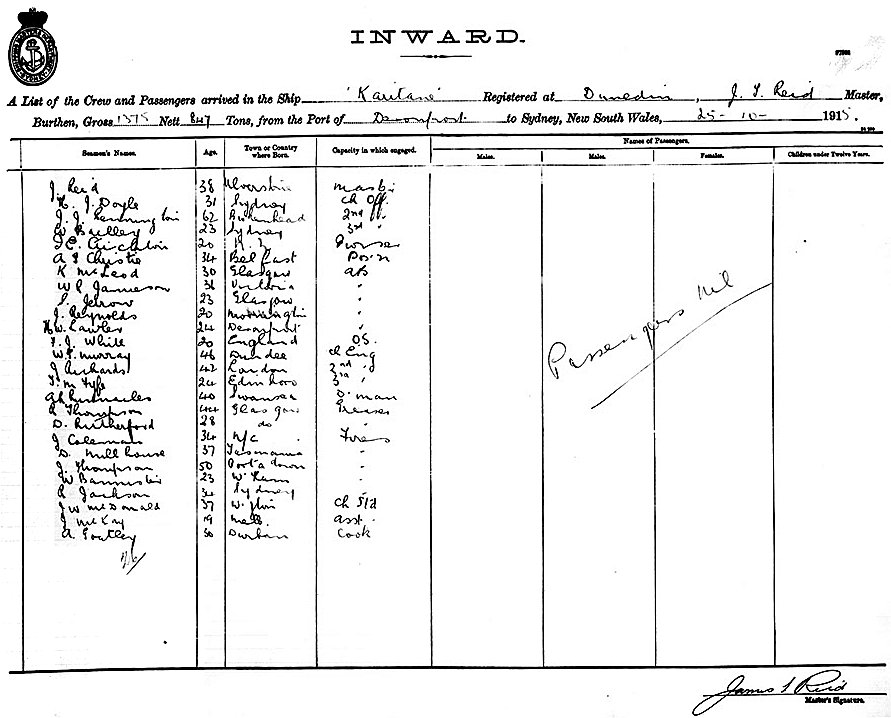 INWARD.
A List of the Crew and Passengers arrived in the Ship 'Karitane' Registered at Dunedin, J. T. Reid Master,
Burthen, Gross 1375 Nett 847 Tons, from the Port of Devonport to Sydney, New South Wales, 25-10- 1915.
Names of Passengers.
Seamen's Names. Age. Town or Country where Born. Capacity in which engaged. Males. Males. Females. Children under Twelve Years.
J. Reid 38 Ulverston
H. J. Doyle 31 Sydney Ch Off.
J. J. 62 Birkenhead 2nd
W Bailey 23 Sydney 3rd "
20 N. Z
A S Christie 34 Belfast Bos'n
K McLeod 30 Glasgow AB
W P Jamieson 31 Victoria "
23 Glasgow "
J. Reynolds 20 "
H. W. Lawler 24 Devonport "
F. J. White 20 England OS.
W. F. Murray 46 Dundee Ch Eng
J Richards 42 London 2nd "
T. M Fyfe 24 3rd "
40 Swansea D. man
R Thompson 44 Glasgow Greaser
D. Rutherford 28 do "
J Coleman 34 N/C Fires
D. Millhouse 37 Tasmania "
J. Thompson 50 Portadown "
W Bannister 23 "
R Jackson Sydney "
J W McDonald 37 Ch Std
J McKay 19 Melb. Asst.
A. 30 Durban Cook
Passengers Nil
James T Reid
Master's Signature.